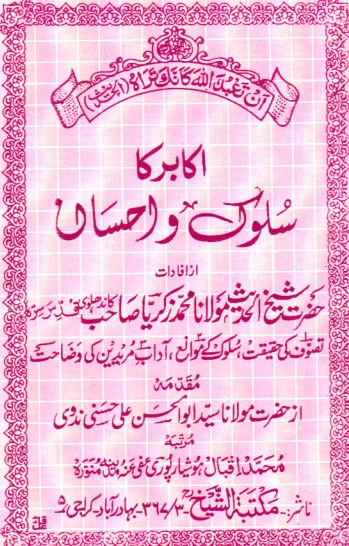 اَنْ تَعْبُدَ اللهَ كَاَنَّكَ تَرَاهُ (الحدیث)
اکابر کا
سلوک و احسان
از افادات
حضرت شیخ الحدیث مولانا محمد زکریا صاحب کاندھلوی قدس سرہ
تصوف کی حقیقت، سلوک کے موانع، آدابِ مریدین کی وضاحت
مقدمہ
از حضرت مولانا سید ابوالحسن علی حسنی ندوی
مرتبہ
محمد اقبال ہوشیارپوری عفی عنہ مدینہ منورہ
ناشر:۔ مکتبۃ الشیخ ۳/۳۶۷۔ بہادرآباد۔ کراچی ۵